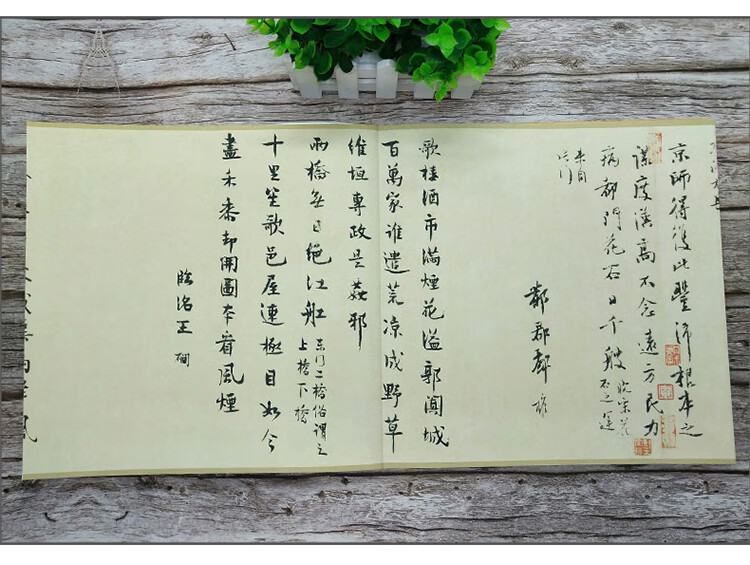 京師得復比豐沛根本之
謀度漢高不念遠方民力
病都門花石日千艘
晚宋花
石之運
來自
此門
鄴郡酈 權
歌樓酒市滿煙花溢郭闐城
百萬家誰遣荒凉成野草
維垣專政是姦邪
兩橋無日絕江舡
東門二橋俗謂之
上橋下橋
十里笙歌邑屋連極目如今
盡禾黍却開圖本看風煙
臨洺王 磵